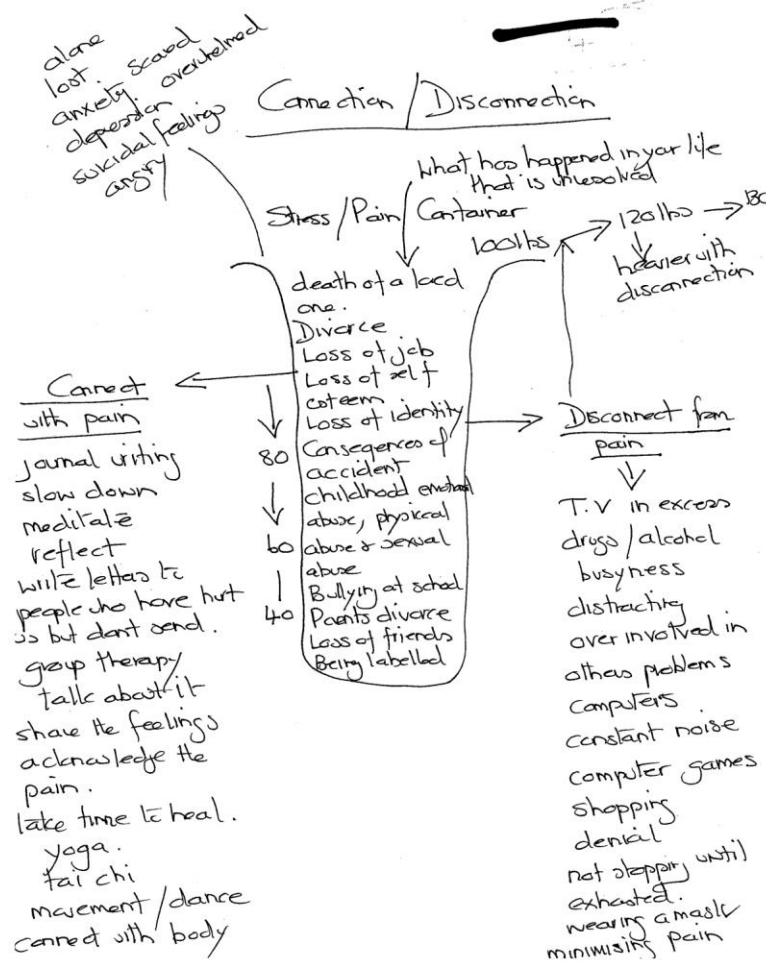 alone
lost. scared
anxiety overwhelmed
depression
suicidal feelings
angry
Connection / Disconnection
what has happened in your life
that is unresolved
Stress / Pain / Container
100lbs
120lbs
heavier with
disconnection
death of a loved
one.
Divorce
Loss of job
Loss of self
esteem
Loss of identity
Conseqences of
accident
childhood emotional
abuse, physical
abuse & sexual
abuse
Bullying at school
Parents divorce
Loss of friends
Being labelled
80
60
40
Connect
with pain
journal writing
slow down
meditate
reflect
write letters to
people who have hurt
us but dont send.
group therapy
talk about it
share the feelings
acknowledge the
pain.
take time to heal.
yoga.
tai chi
movement / dance
connect with body
Disconnect from
pain
T.V in excess
drugs / alcohol
busyness
distracting
over involved in
others problems
computers
constant noise
computer games
shopping
denial
not stopping until
exhausted.
wearing a mask
minimising pain